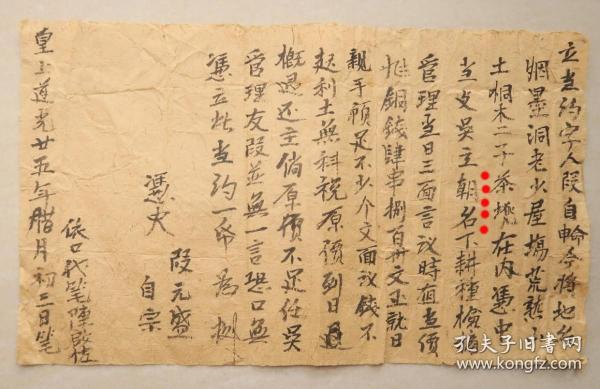 立当约字人段自輪今将地名
烟墨洞老少屋塲荒熟山
土桐木二子茶境在内憑中
当与吴主朝名下耕種檢
管理当日三面言议時值当價
惟銅錢肆串捌百卅文正就日
親手領足不少个文面议錢不
起利土無科税原領到日
概退还主倘原領不足任吴
管理友段並無一言恐口無
憑立此当约一帋為
憑中 段元盛
自宗
依口代笔陳啟佐
皇上道光廿五年腊月初二日笔
孔夫子旧书网
www.kongfz.com